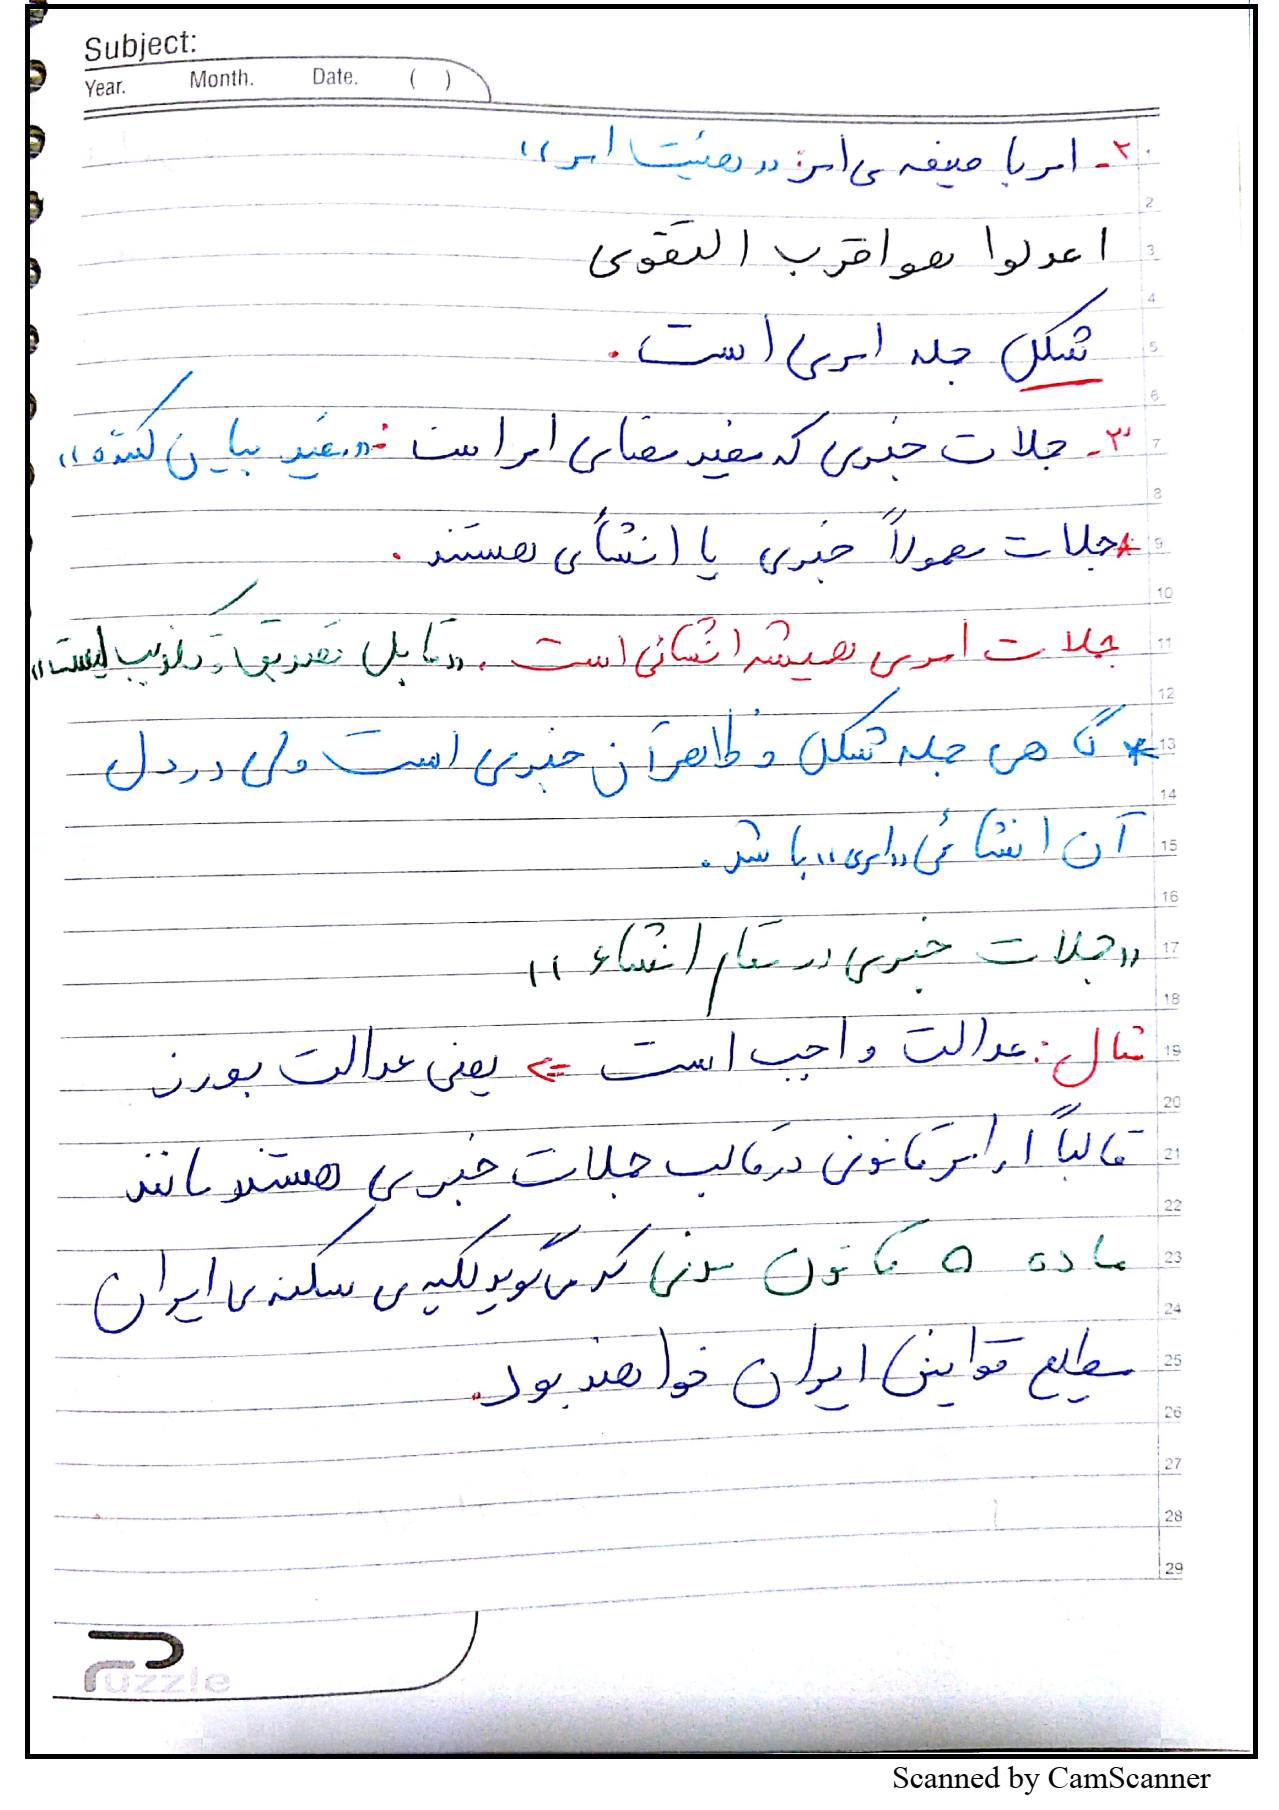 Subject:
Year. Month. Date. ( )
۲- امر با صیغه ی امر: «هئیت امر»
اعدلوا هو اقرب التقوی
شکل جمله امری است.
۳- جملات خبری که مفید معنای امر است: «مفید بیان کننده»
*جملات معمولاً خبری یا انشأی هستند.
جملات امری همیشه انشائی است. «قابل تصدیق و تکذیب نیست»
* گاهی جمله شکل و ظاهر آن خبری است ولی در دل
آن انشائی «امری» باشد.
«جملات خبری در مقام انشاء»
مثال: عدالت واجب است ⇐ یعنی عدالت بورزن
قالباً اوامر قانونی در قالب جملات خبری هستند مانند
ماده ۵ قانون مدنی که می گوید لکیه ی سکنه ی ایران
مطیع قوانین ایران خواهند بود.
1
2
3
4
5
6
7
8
9
10
11
12
13
14
15
16
17
18
19
20
21
22
23
24
25
26
27
28
29
Puzzle
Scanned by CamScanner